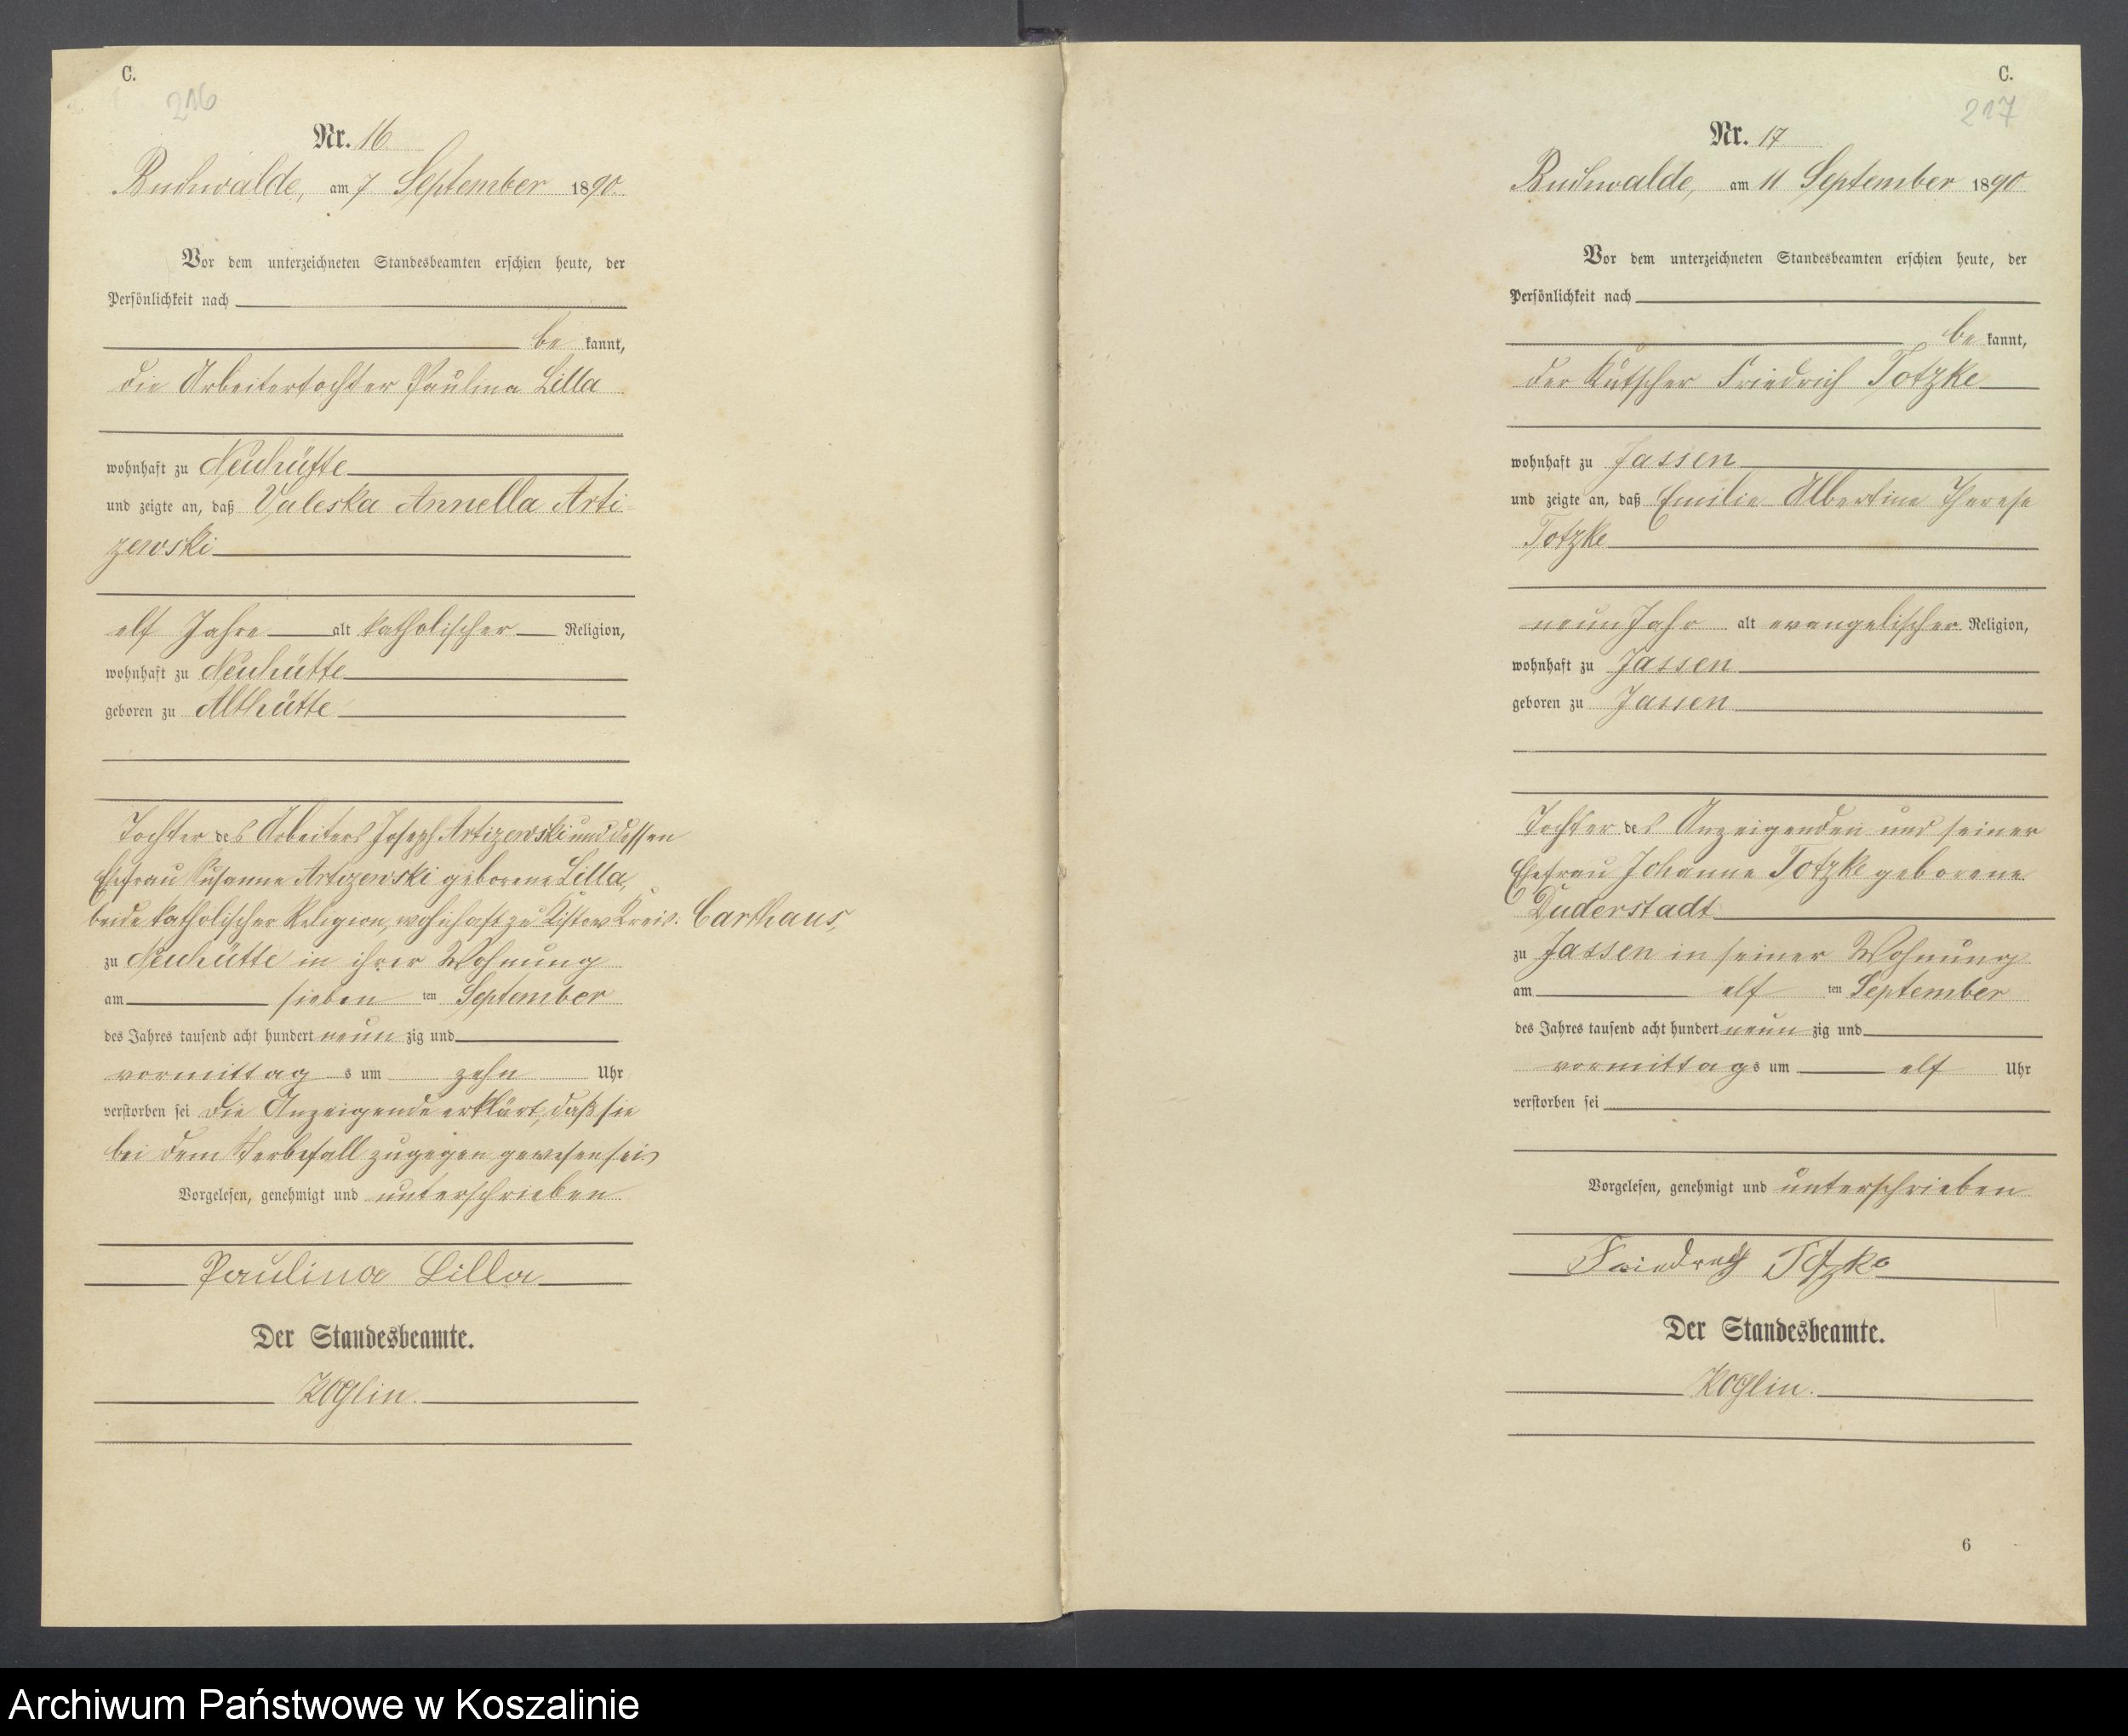 C.
216
Nr. 16
Buchwalde, am 7 September 1890.
Vor dem unterzeichneten Standesbeamten erschien heute, der
Persönlichkeit nach
be kannt,
die Arbeitertochter Paulina Lilla
wohnhaft zu Neuhütte
und zeigte an, daß Valeska Annella Arti-
zewski
elf Jahre alt katholischer Religion,
wohnhaft zu Neuhütte
geboren zu Althütte
Tochter des Arbeiters Joseph Artizewski und dessen
Ehefrau Susanne Artizewski geborene Lilla,
beide katholischer Religion, wohnhaft zu Kistow Kreis. Carthaus,
zu Neuhütte in ihrer Wohnung
am sieben ten September
des Jahres tausend acht hundert neun zig und
vormittag s um zehn Uhr
verstorben sei die Anzeigende erklärt, daß sie
bei dem Sterbefall zugegen gewesen sei
Vorgelesen, genehmigt und unterschrieben
Paulina Lilla
Der Standesbeamte.
Koglin.
C.
217
Nr. 17
Buchwalde, am 11 September 1890
Vor dem unterzeichneten Standesbeamten erschien heute, der
Persönlichkeit nach
be kannt,
der Kutscher Friedrich Totzke
wohnhaft zu Jassen
und zeigte an, daß Emilie Albertine Therese
Totzke
neun Jahr alt evangelischer Religion,
wohnhaft zu Jassen
geboren zu Jassen
Tochter des Anzeigenden und seiner
Ehefrau Johanne Totzke geborene
Duderstadt
zu Jassen in seiner Wohnung
am elf ten September
des Jahres tausend acht hundert neun zig und
vormittags um elf Uhr
verstorben sei
Vorgelesen, genehmigt und unterschrieben
Friedrich Totzke
Der Standesbeamte.
Koglin.
6
Archiwum Państwowe w Koszalinie